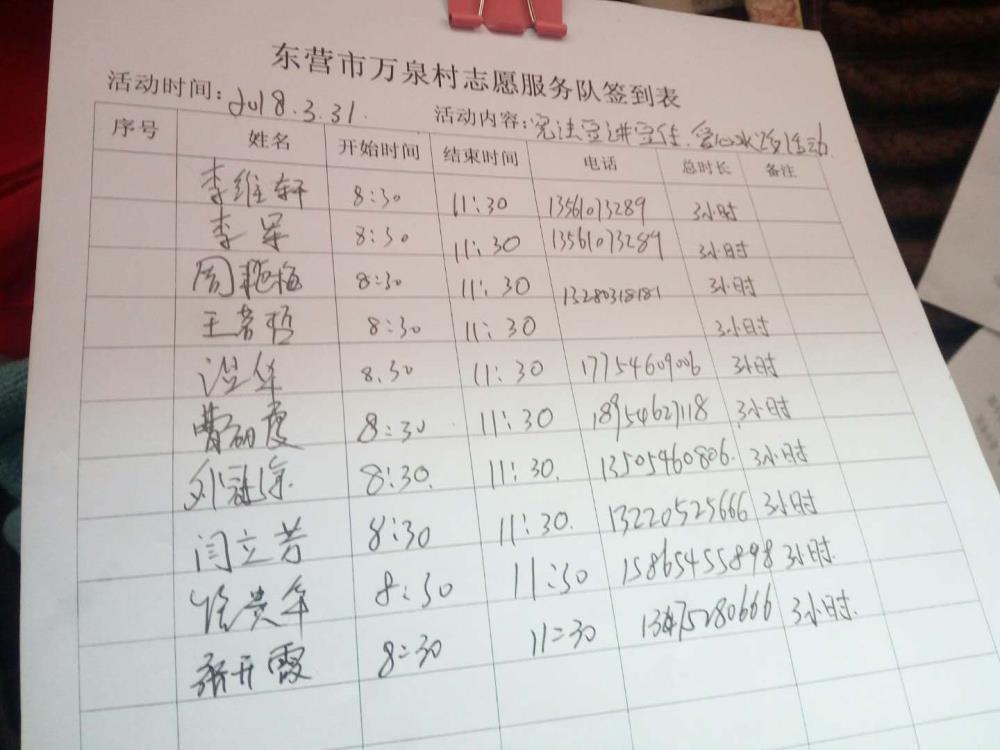 东营市万泉村志愿服务队签到表
活动时间：2018.3.31. 活动内容：宪法宣讲宣传.爱心水饺活动.
序号 姓名 开始时间 结束时间 电话 总时长 备注
李维轩 8:30 11:30 13561073289 3小时
李军 8:30 11:30 13561073289 3小时
周艳梅 8:30 11:30 13280318181 3小时
王若哲 8:30 11:30 3小时
8:30 11:30 17754609006 3小时
曹砚霞 8:30 11:30 18954627118 3小时
8:30. 11:30. 13505460806. 3小时
闫立芳 8:30 11:30. 13220525666 3小时
徐贵年 8:30 11:30 15865455898 3小时.
张开霞 8:30 11:30 13475280666 3小时.